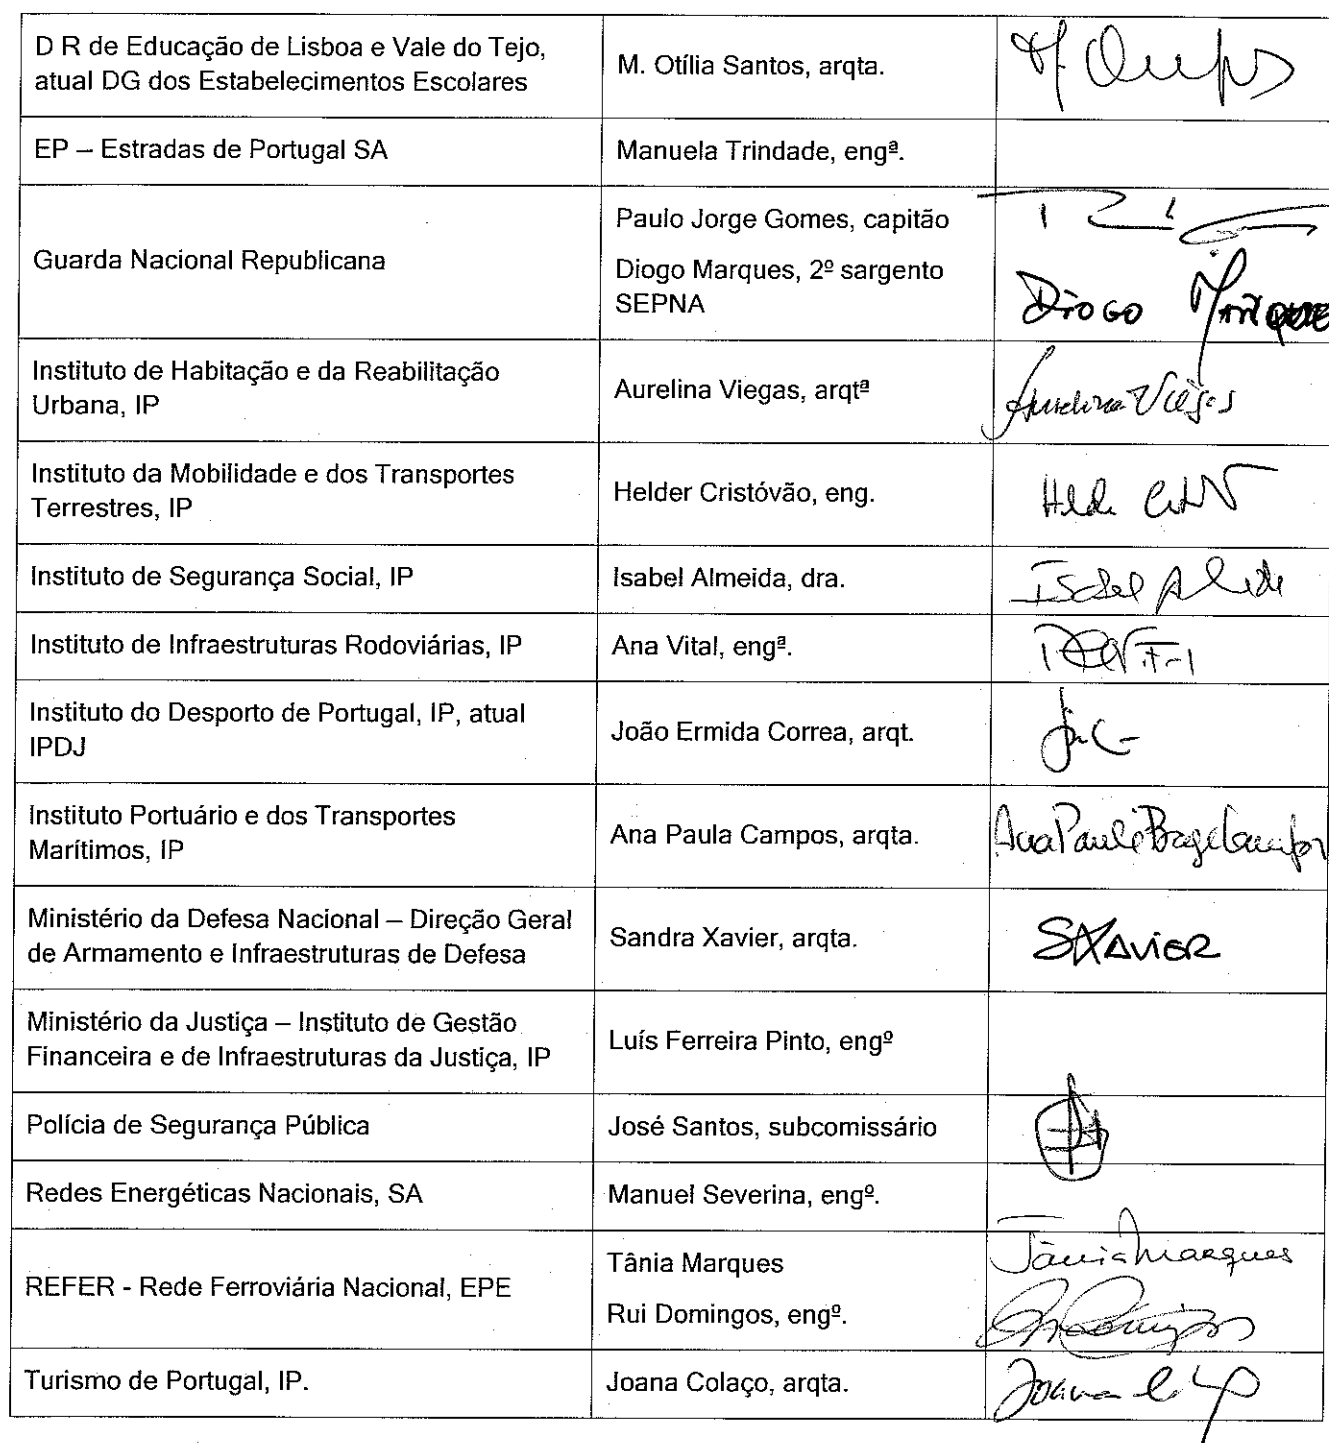 D R de Educação de Lisboa e Vale do Tejo,
atual DG dos Estabelecimentos Escolares
M. Otília Santos, arqta.
EP – Estradas de Portugal SA
Manuela Trindade, engª.
Guarda Nacional Republicana
Paulo Jorge Gomes, capitão
Diogo Marques, 2º sargento
SEPNA
Diogo Marques
Instituto de Habitação e da Reabilitação
Urbana, IP
Aurelina Viegas, arqtª
Aurelina Viegas
Instituto da Mobilidade e dos Transportes
Terrestres, IP
Helder Cristóvão, eng.
Instituto de Segurança Social, IP
Isabel Almeida, dra.
Isabel Almeida
Instituto de Infraestruturas Rodoviárias, IP
Ana Vital, engª.
Instituto do Desporto de Portugal, IP, atual
IPDJ
João Ermida Correa, arqt.
Instituto Portuário e dos Transportes
Marítimos, IP
Ana Paula Campos, arqta.
Ana Paula Campos
Ministério da Defesa Nacional – Direção Geral
de Armamento e Infraestruturas de Defesa
Sandra Xavier, arqta.
SXAVIER
Ministério da Justiça – Instituto de Gestão
Financeira e de Infraestruturas da Justiça, IP
Luís Ferreira Pinto, engº
Polícia de Segurança Pública
José Santos, subcomissário
Redes Energéticas Nacionais, SA
Manuel Severina, engº.
REFER - Rede Ferroviária Nacional, EPE
Tânia Marques
Rui Domingos, engº.
Tânia Marques
Turismo de Portugal, IP.
Joana Colaço, arqta.
Joana